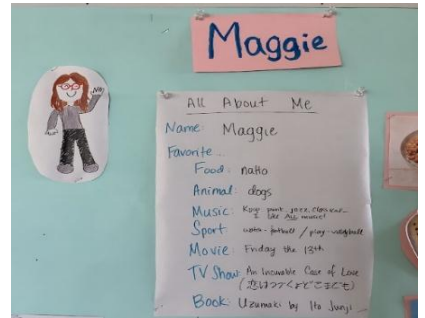 Maggie
Hi!
All About Me
Name: Maggie
Favorite
Food: natto
Animal: dogs
Music: Kpop, punk, jazz, classical...
I like ALL music!
Sport watch-football / play-volleyball
Movie: Friday the 13th
TV Show: An Incurable Case of Love
(恋はつづくよどこまでも)
Book: Uzumaki by Ito Junji